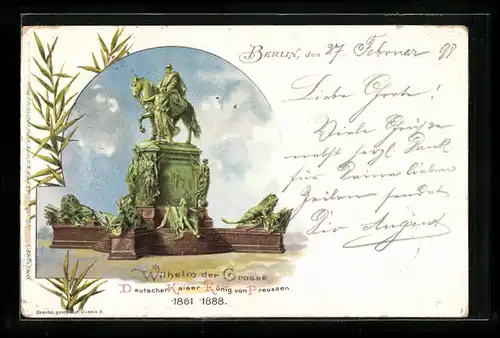 BERLIN, den 27. Februar 98
Liebe Grete!
Viele Grüsse
nebst herzl. Dank
für Deine lieben
Zeilen sendet
Dir August
Wilhelm der Grosse
Deutscher Kaiser König von Preussen
1861 1888.